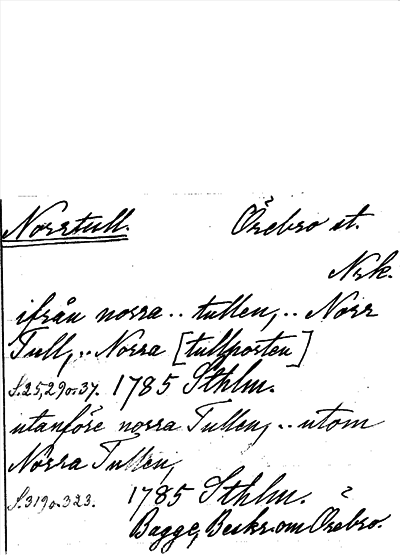 Norrtull. Örebro st.
Nrk.
ifrån norra .. tullen, .. Norr
Tull, .. Norra [tullporten]
S.25,29o.37. 1785 Sthlm.
utanföre norra Tullen, .. utom
Norra Tullen,
S.319o.323. 1785 Sthlm.
Bagge, Beskr. om Örebro.